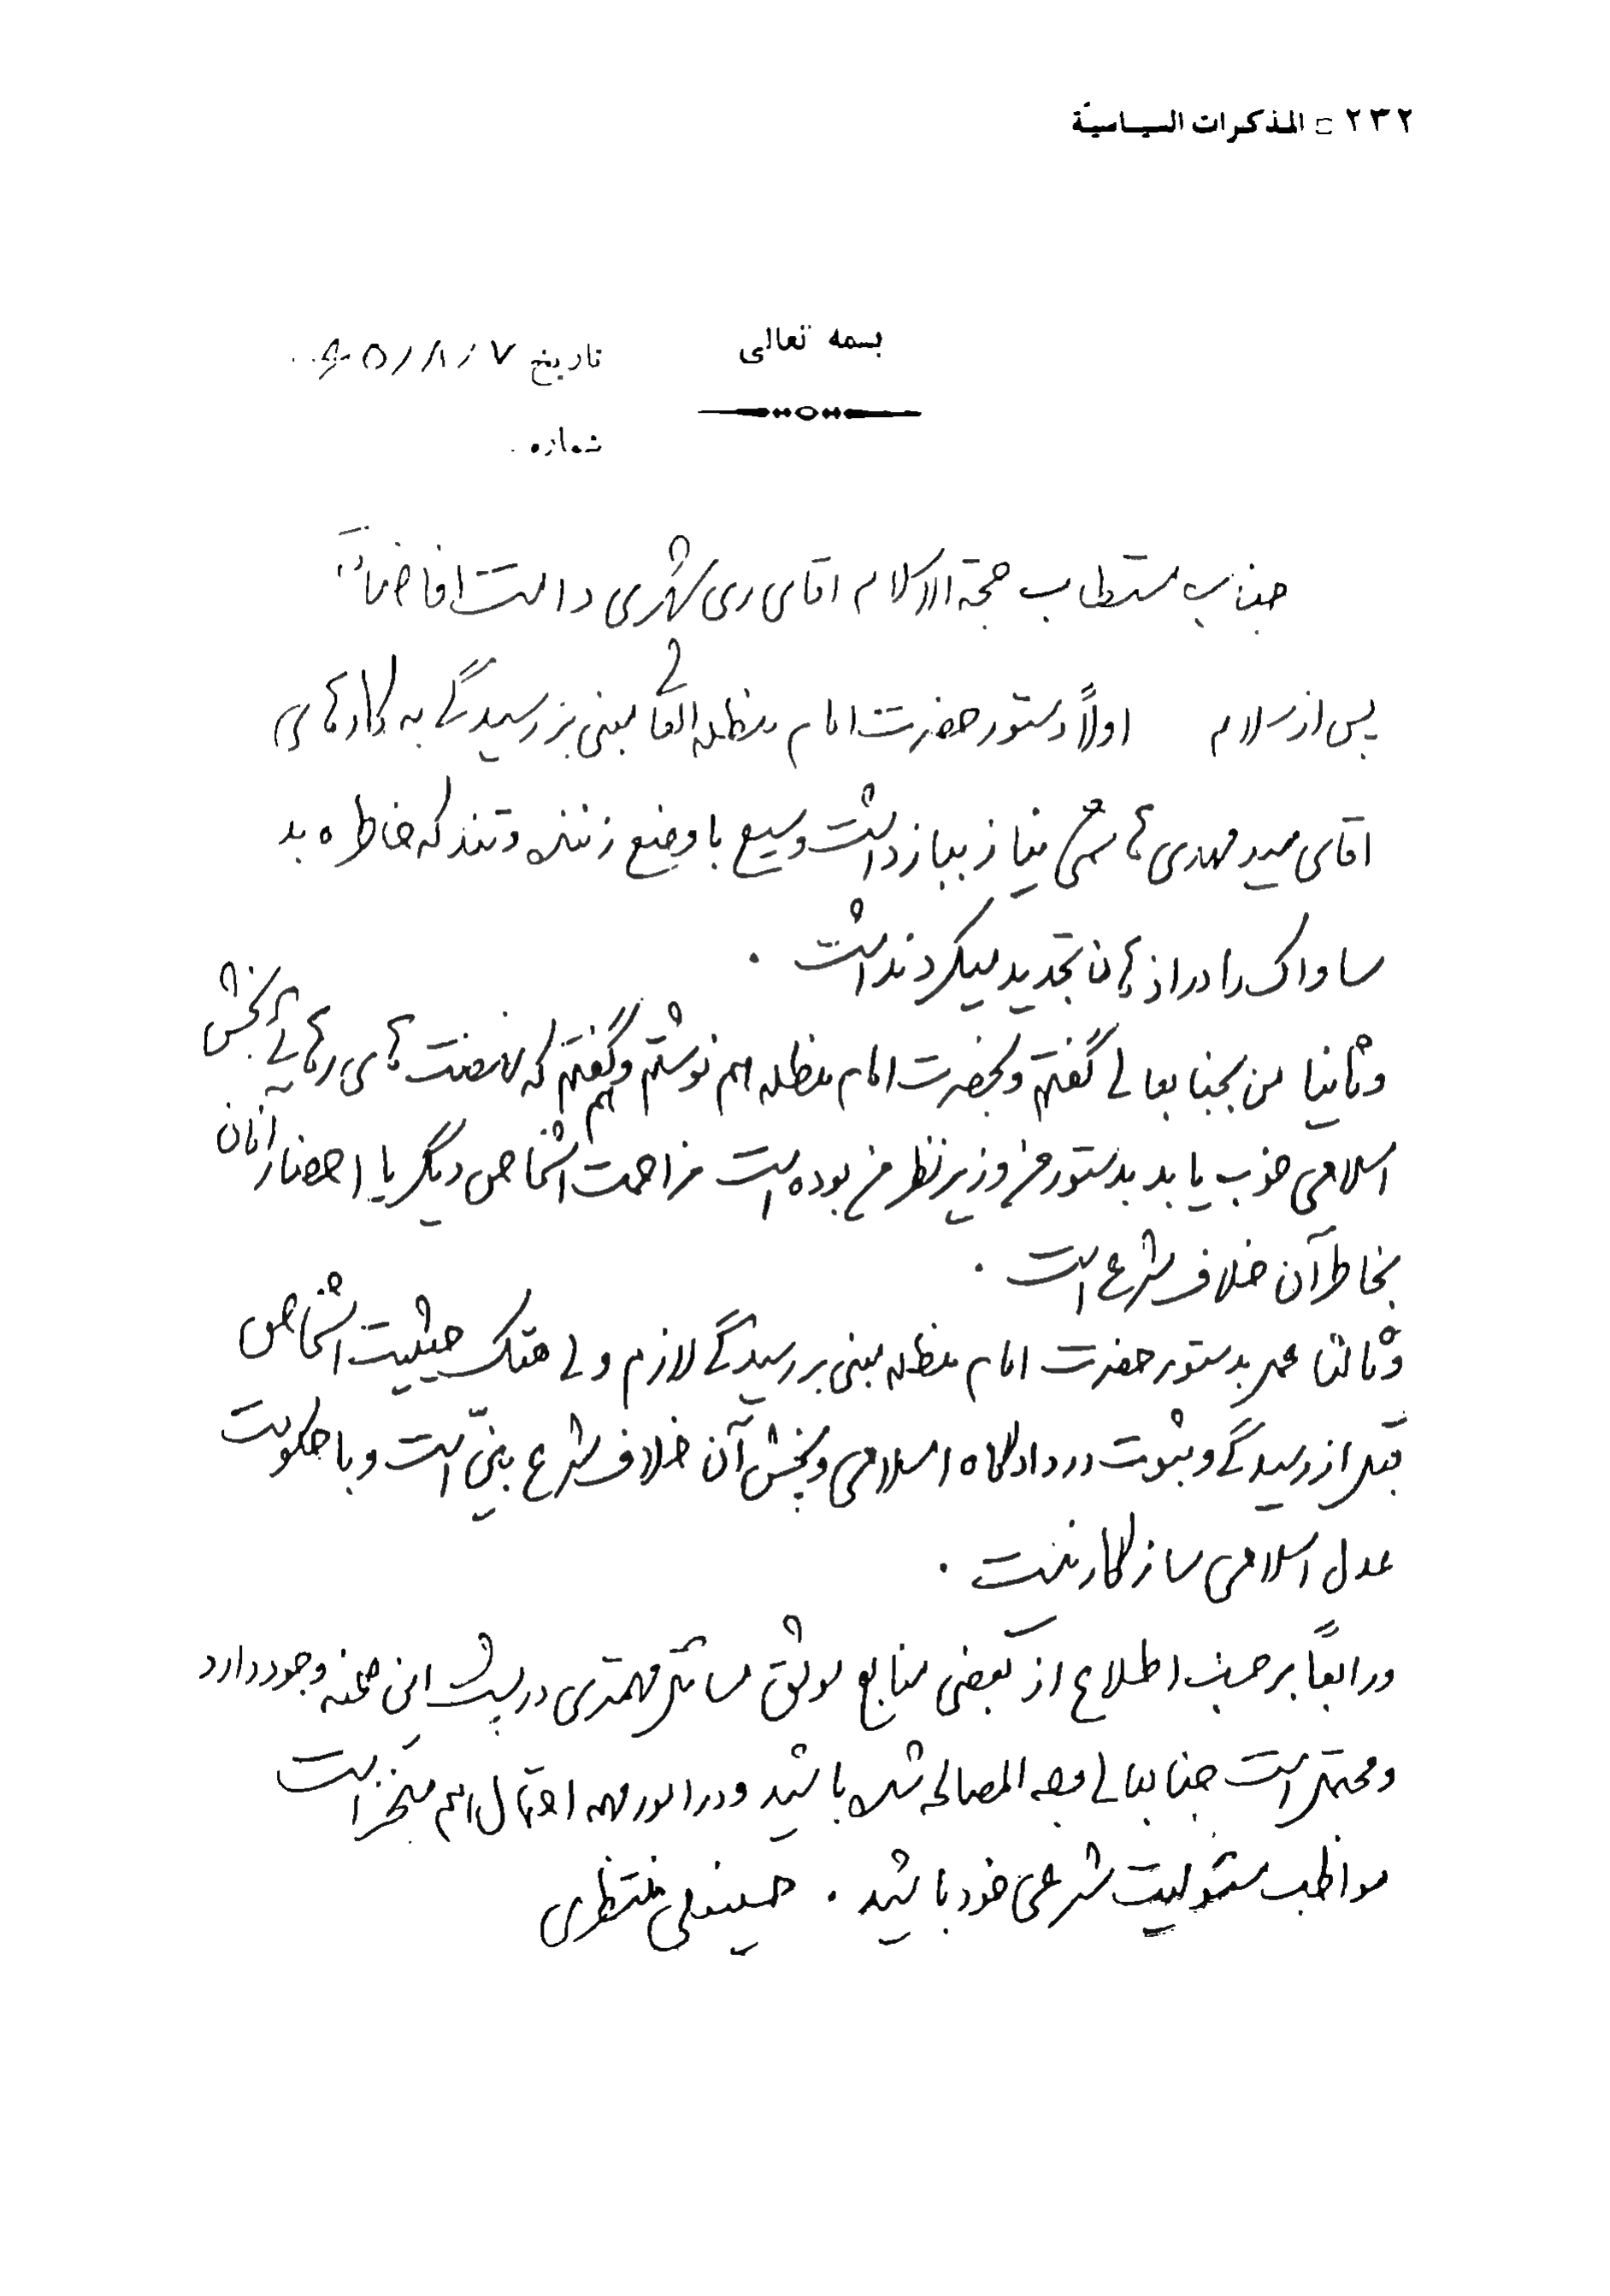 ٢٣٢ □ المذكرات السياسيّة
بسمه تعالی
تاریخ ۶۵/۸/۷
شماره
جناب مستطاب حجة الاسلام آقای ری شهری دامت افاضاته
پس از سلام اولاً دستور حضرت امام مدظله العالی مبنی بر رسیدگی به کارهای
آقای سید مهدی هاشمی نیاز ببازداشت وسیع با وضع زننده و تند که خاطره بد
ساواک را در اذهان تجدید میکرد نداشت .
و ثانیا من بجنابعالی گفتم و بحضرت امام مدظله هم نوشتم و گفتم که نهضت های رهائی بخش
اسلامی خوب یا بد بدستور من و زیر نظر من بوده است مزاحمت اشخاص دیگر یا احضار آنان هم
بخاطر آن خلاف شرع است .
و ثالثا عمل بدستور حضرت امام مدظله مبنی بر رسیدگی لازم ولی هتک حیثیت اشخاص
قبل از رسیدگی و ثبوت در دادگاه اسلامی و پخش آن خلاف شرع بیّن است و با حکومت
عدل اسلامی سازگار نیست .
و رابعاً بر حسب اطلاع از بعضی منابع موثق مسائل مهمتری در پشت این صحنه وجود دارد
و محتمل است جنابعالی وجه المصالحه شده باشید و در امور مهمه احتمال هم منجز است
مواظب مسئولیت شرعی خود باشید . حسینعلی منتظری